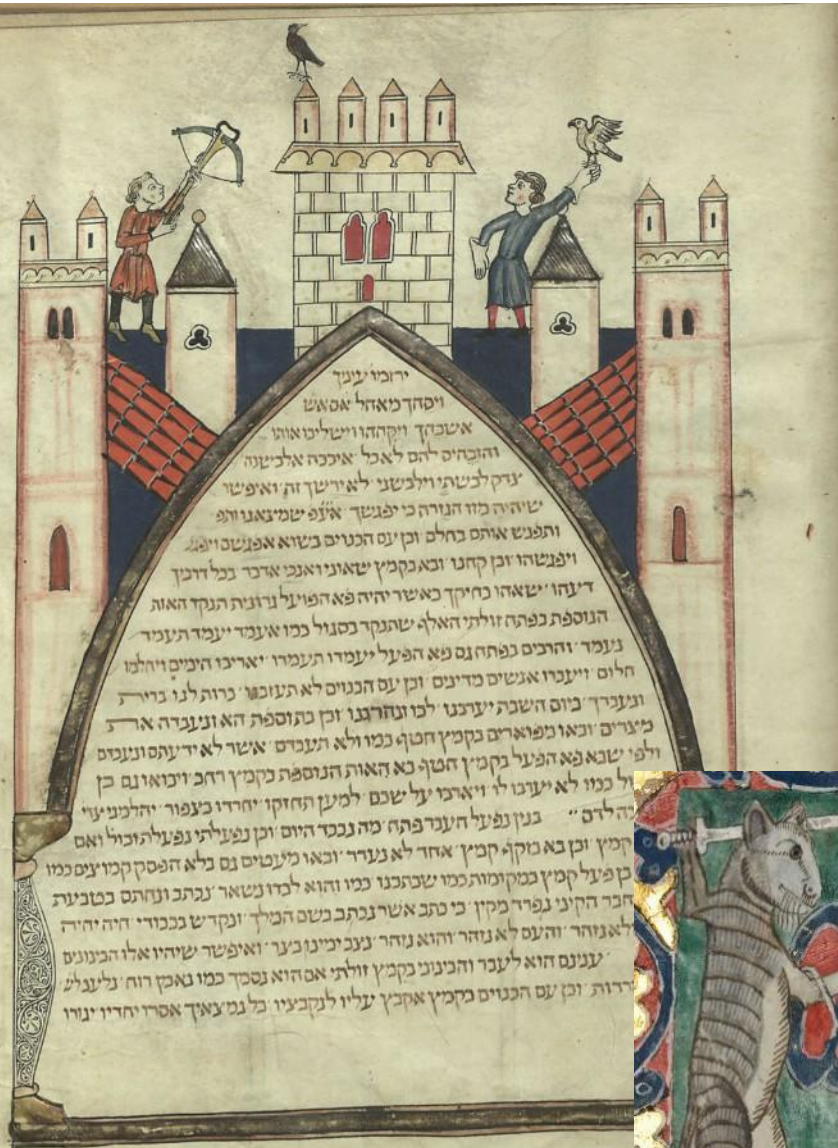 ירומו עיניך
ויסהך מאהל
אשכהך ויקחהו וישליכו אותו
והזבחים להם לאכל איככה אלבשנה
צדק לבשתי וילבשני לא יירשך זה ואיפשר
שיהיה מזו הגזרה כי יפגשך
ותפגש אותם בחלם וכן עם הכנוים בשוא אפגשם
ויפגשהו וכן קחנו ובא בקמץ שאוני ואנכי אדבר בכל דרכיך
דיעהו שאהו בחיקך כאשר יהיה פא הפועל גרונית תנקד האות
הנוספת בפתח זולתי האלף שתנקד בסגול כמו אעמד יעמד תעמד
נעמד והרבים בפתח גם פא הפעל יעמדו תעמדו יאריכו הימים ויחלמו
חלום ויעברו אנשים מדינים וכן עם הכנוים לא תעזבנו כרות לנו ברית
ונעבדך ביום השבת יערכנו לכו ונהרגנו וכן בתוספת הא ונעבדה את
מצרים ובאו מפוארים בקמץ חטף כמו ולא תעבדם אשר לא ידעתם ונעבדם
ולפי שבא פא הפעל בקמץ חטף בא האות הנוספת בקמץ רחב ויבואו גם כן
כמו לא יערבו לו ויארבו על שכם למען תחזקו יחרדו כצפור יהלמני צדיק
בנין נפעל העבר פתח מה נכבד היום וכן נפעלתי נפעלת וכול ואם
קמץ וכן בא מקף קמץ אחד לא נעדר ובאו מעטים גם בלא הפסק קמוצים כמו
כן פעל קמץ במקומות כמו שכתבנו כמו והוא לבדו נשאר נכתב ונחתם בטבעת
חבר הקיני נפרד מקין כי כתב אשר נכתב בשם המלך ונקדש בכבודי חיה יהיה
לא נזהר והעם לא נזהר והוא נזהר נצב ימינו כצר ואיפשר שיהיו אלו הבינונים
ענינם הוא לעבר והבינוני בקמץ זולתי אם הוא נסמך כמו נאמן רוח
וכן עם הכנוים בקמץ אקבץ עליו לנקבציו כל נמצאיך אסרו יחדיו